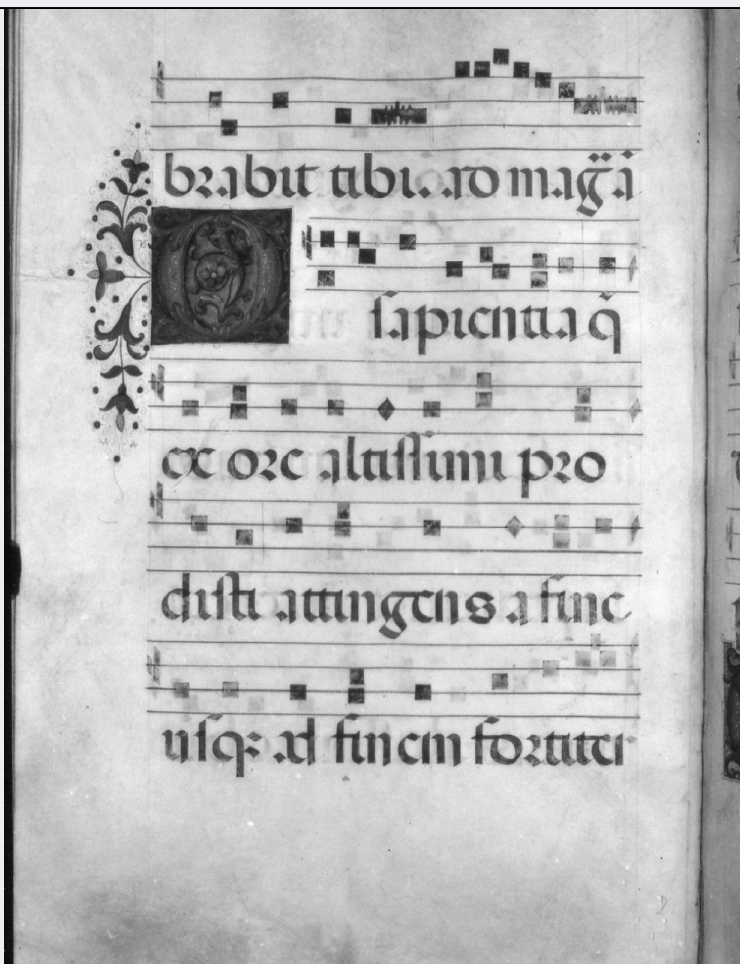 brabit tibi. ad mag̃ã
O
sapientia q̃
ex ore altissimi pro
disti attingens a fine
usq: ad finem fortiter